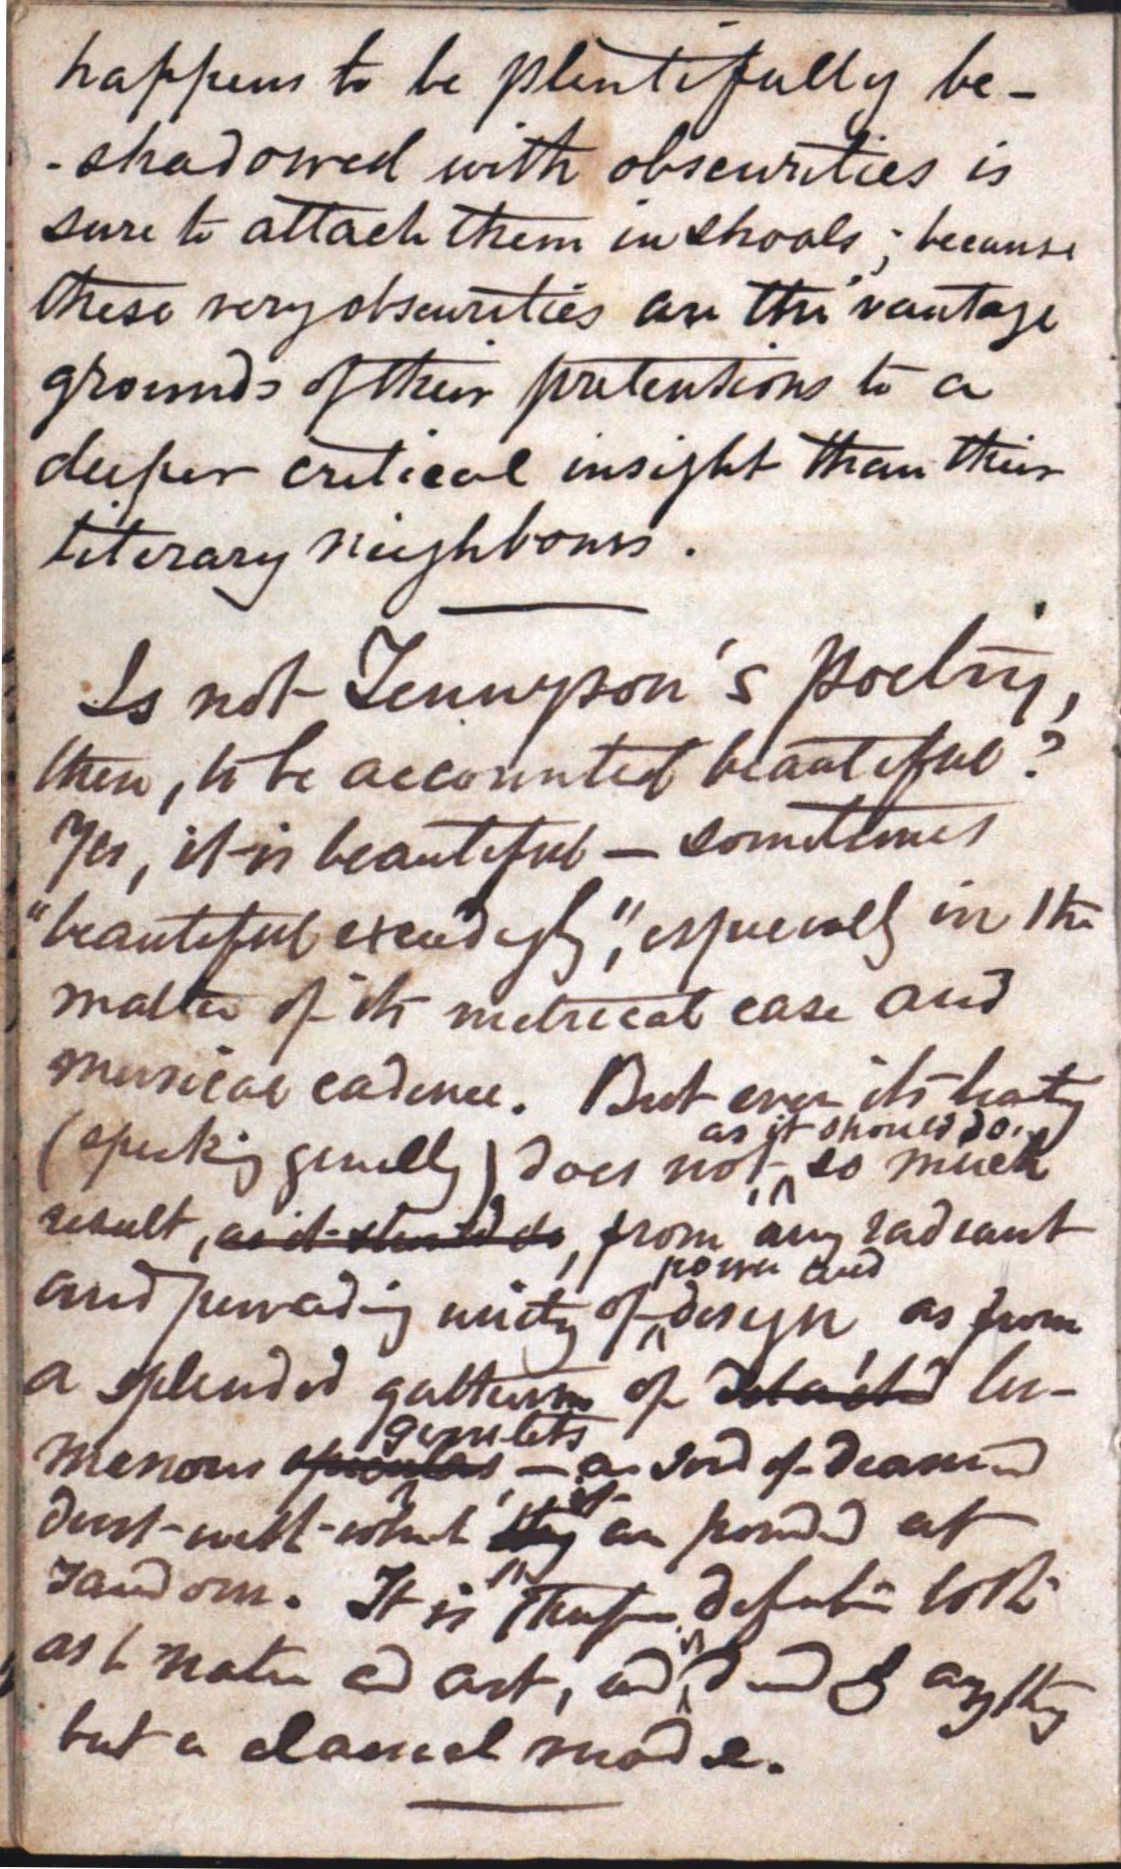 happens to be plentifully be-
-shadowed with obscurities is
sure to attach them in shoals; because
these very obscurities are the vantage
grounds of their pretensions to a
deeper critical insight than their
literary neighbours.
Is not Tennyson's poetry,
then, to be accounted beautiful?
Yes, it is beautiful — sometimes
"beautiful exceedingly", especially in the
matter of its metrical ease and
musical cadence. But even its beauty
as it should do,
(speaking generally) does not so much
result, as it should do, from any radiant
power and
and pervading unity of design, as from
a splendid gathering of detached lu-
gemlets
minous spiculas, — a sort of diamond
it
dust with which they are powdered at
random. It is therefore defective both
as to nature and art, and indeed anything
but a classical model.